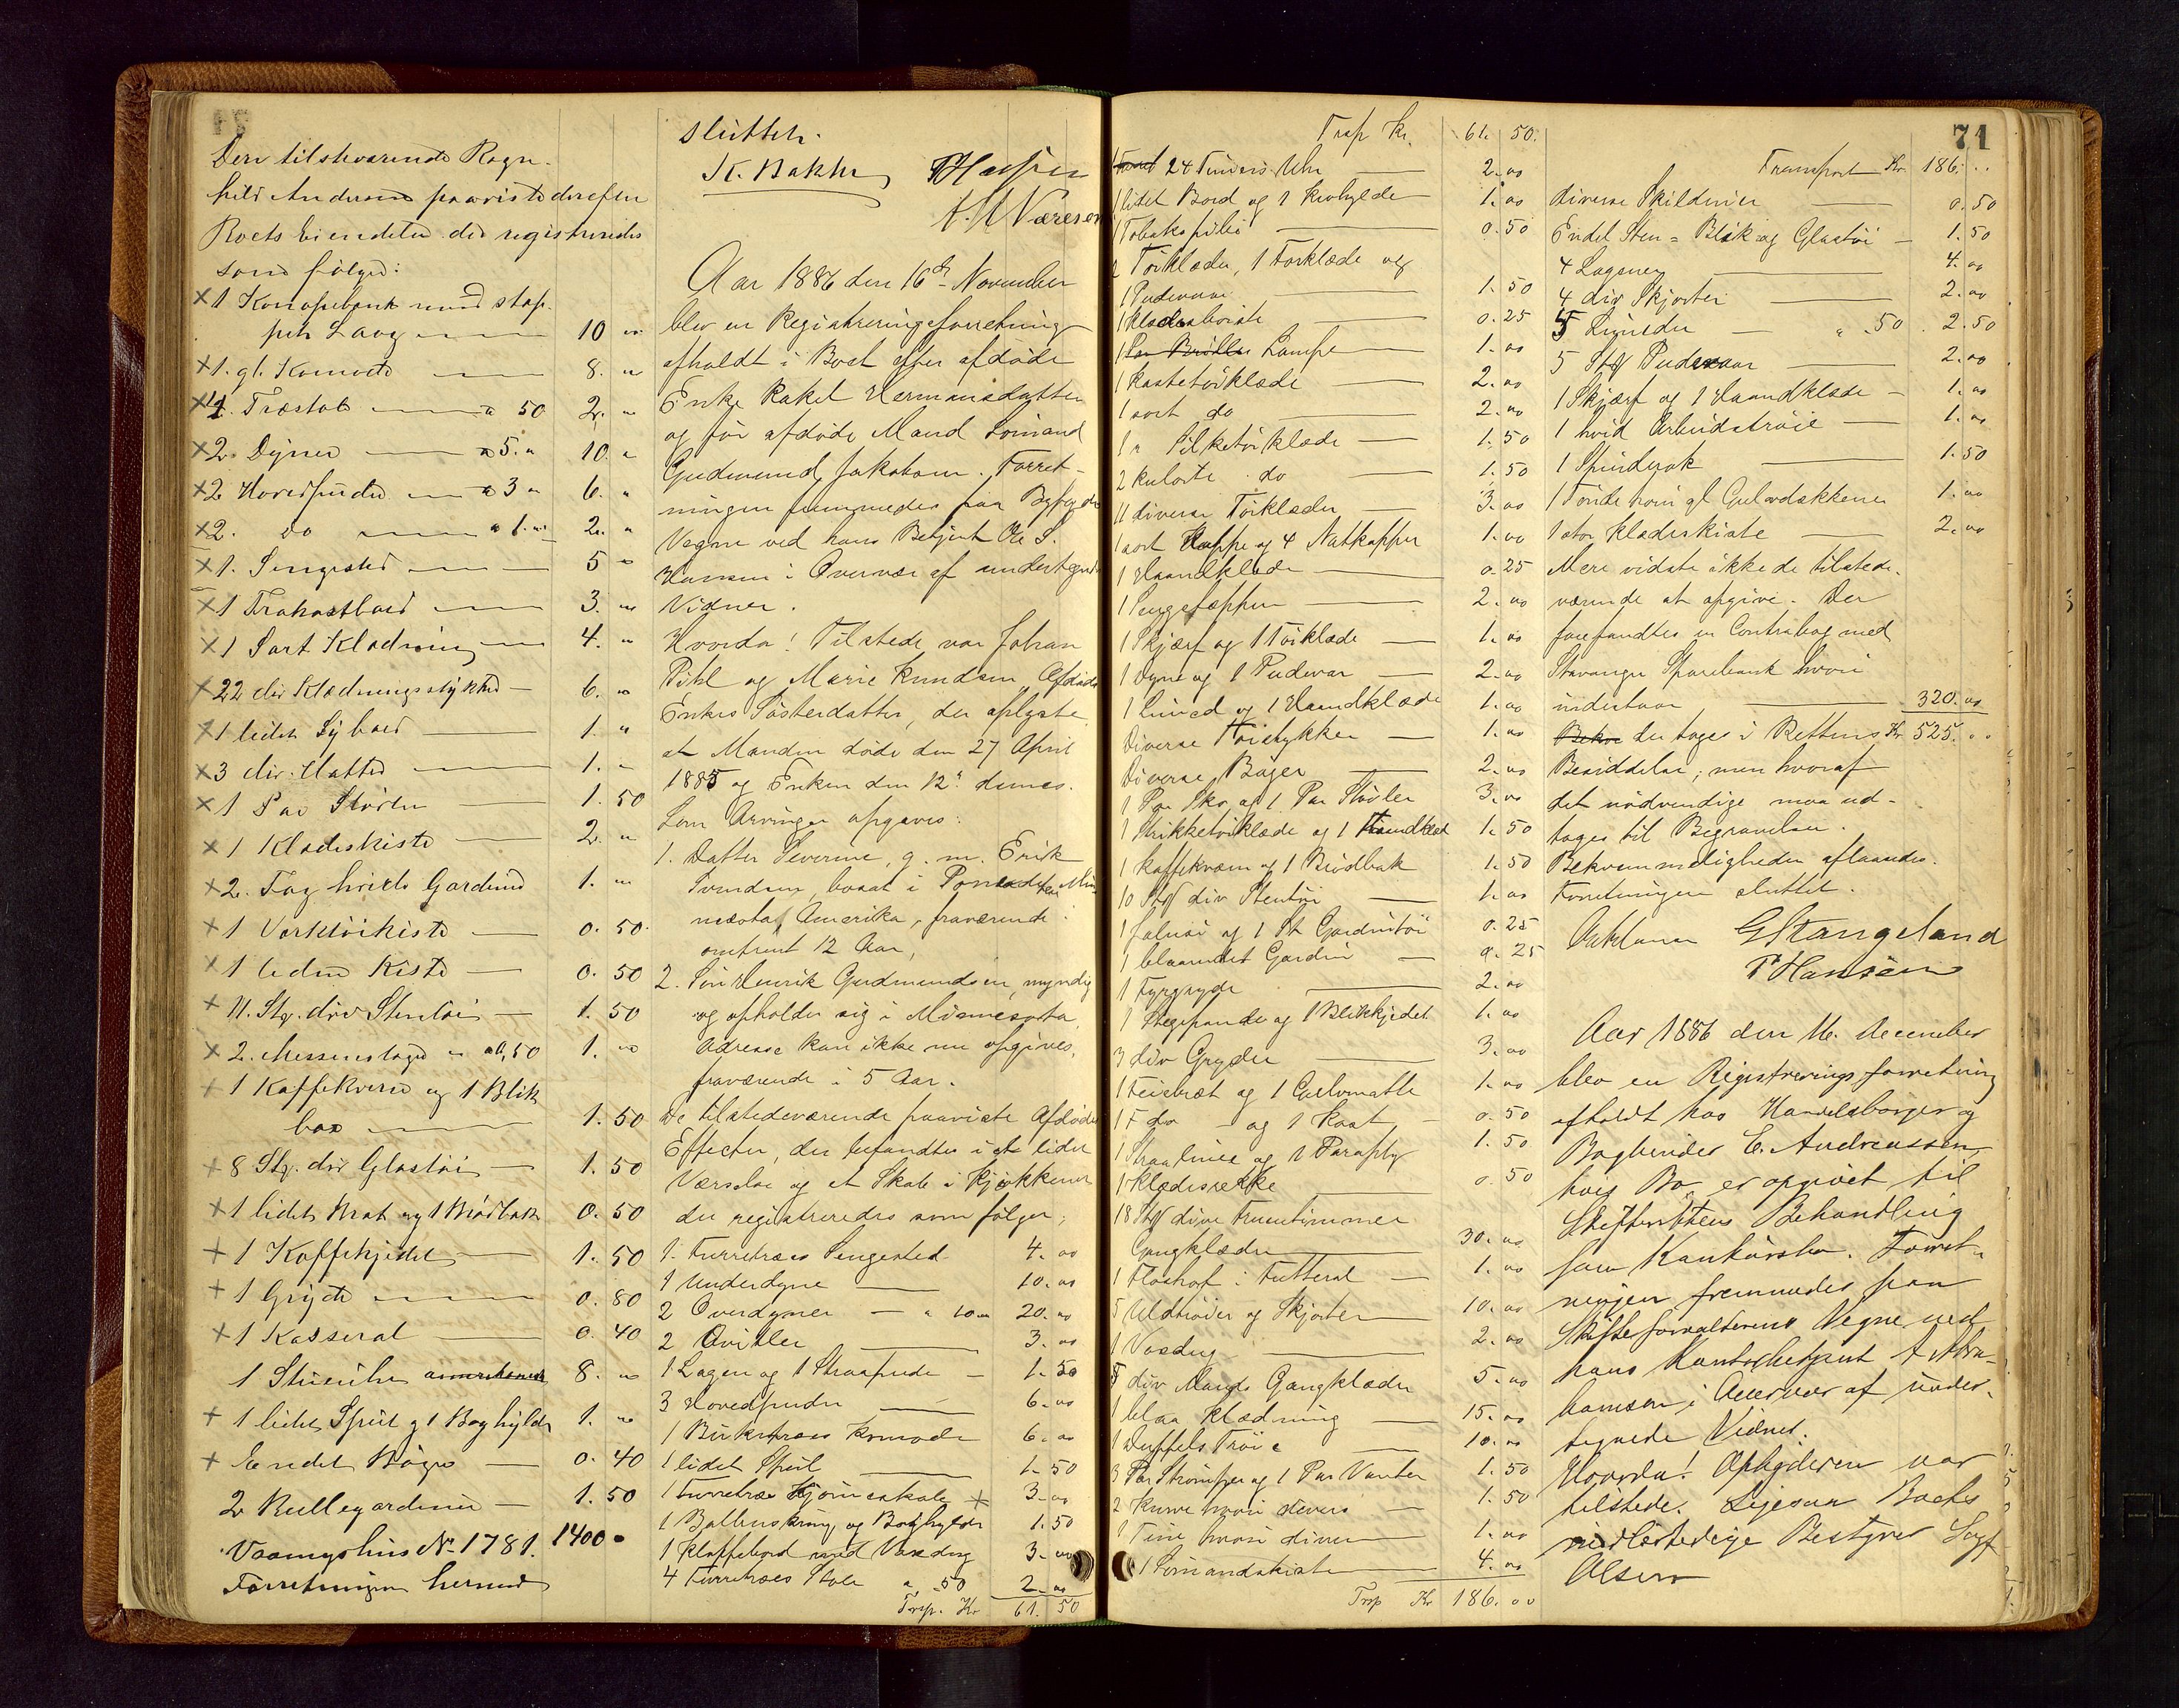 Den tilstværende Ragn-
hild Andersen paaviste derefter
Boets Eiendele der registreredes
som følger:
×1 Konapebænk med stop-
pet Laag 10 "
×1. gl. Komode 8. "
×4. Træstole a 50 2. "
×2. Dyner a 5. " 10. "
×2 Hovedpuder a 3 " 6. "
×2. do a 1. " 2. "
×1. Sengested 5 "
×1 Trækastbord 3. "
×1 Sort Klædning 4. "
×22 div Klædningsstykker 6. "
×1 lidet Sybord 1. "
×3 div. Hatte 1. "
×1 Par Støvler 1. 50
×1 Klædeskiste 2. "
×2. Fag hvide Gardiner 1. "
×1 Værktøikiste 0. 50
×1 liden Kiste 0. 50
×11. Stk. div Stentøi 1. 50
×2. Messingstager a 0,50 1. "
×1 Kaffekværn og 1 Blik
box 1. 50
×8 Stk. div Glastøi 1. 50
×1 lidet Brat og 1 Brødbak 0. 50
×1 Kaffekjedel 1. 50
×1 Gryde 0. 80
×1 Kasserol 0. 40
1 Stueuhr amerikansk 8. "
×1 lidet Speil og 1 Boghylde 1. "
×Endel Bøger 0. 40
2 Rullegardiner 1. 50
Vaaningshus No 1781. 1400 "
Forretningen hermed
sluttet.
K. Bakke THansen
A. M Næresen
Aar 1886 den 16de November
blev en Registreringsforretning
afholdt i Boet efter afdøde
Enke Rakel Hermansdatter
og før afdøde Mand Sømand
Gudmund Jakobsen. Forret-
ningen fremmedes paa Byfogdens
Vegne ved hans Betjent Ole S.
Hansen i Overvær af undertegnede
Vidner.
Hvorda! Tilstede var Johan
Pihl og Marie Knudsen, Afdøde
Enkes Søsterdatter, der oplyste
at Manden døde den 27 April
1885 og Enken den 12te dennes.
Som Arvinger opgaves:
1. Datter Severine, g. m. Erik
Svendsen, bosat i Min-
nesota, Amerika, fraværende
omtrent 12 Aar,
2. Søn Henrik Gudmundsen, myndig
og opholder sig i Minnesota,
Adresse kan ikke nu opgives,
fraværende i 5 Aar.
De tilstedeværende paaviste Afdødes
Effecter, der befandtes i et lidet
Værelse og et Skab i Kjøkkenet
der registreredes som følger;
1. Furretræes Sengested 4. oo
1 Underdyne 10. oo
2 Overdyner a 10 " 20. oo
2 Qvitler 3. oo
1 Lagen og 1 Straapude 1. 50
3 Hovedpuder 6. oo
1 Birketræes Komode 6. oo
1 lidet Speil 1. 50
1 Furretræs Hjørneskab × 3. oo
1 og Boghylde 1. 50
1 Klaffebord med Voxdug 3. oo
4 Furretræes Stole a .50 2. oo
Trsp. Kr 61. 50
Trsp Kr. 61. 50.
24 Timers Uhr 2. oo
1 lidet Bord og 1 Krohylde 1. oo
1 Tobakspibe 0. 50
2 Tørklæder, 1 Forklæde og
1 Pudevaar 1. 50
1 Klædesbørste 0. 25
1 Lampe 1. oo
1 Kastetørklæde 2. oo
1 sort do 2. oo
1 " Silketørklæde 1. 50
2 kulørte do 1. 50
11 diverse Tørklæder 3. oo
1 sort Kappe og 4 Natkapper 1. oo
1 Haandklæde 0. 25
1 Sengetæppe 2. oo
1 Skjærf og 1 Tørklæde 1. oo
1 Dyne og 1 Pudevar 2. oo
1 Linned og 1 Haandklæde 1. oo
Diverse Tøistykker 1. oo
Diverse Bøger 2. oo
1 Par Sko og 1 Par Støvler 3. oo
1 Strikketørklæde og 1 Haandklæde 1. 50
1 Kaffekværn og 1 Brødbak 1. 50
10 Stk div Stentøi 1. oo
1 og 1 St Gardintøi 0. 25
1 blaarandet Gardin 0. 25
1 Fyrgryde 2. oo
1 Stegepande og 1 Blikkjedel 1. oo
3 div Gryder 3. oo
1 Feiebræt og 1 Gulvmatte 1. oo
1 F do og 1 Kost 0. 50
1 Straalinie og 1 Paraply 1. 50
1 Klædesrække 0. 50
18 Stk dive Fruentimmer
Gangklæder 30. oo
1 Floshat i Futteral 1. oo
5 Uldtrøier og Skjorter 10. oo
1 Voxdug 2. oo
8 div Mands Gangklæder 5. oo
1 blaa Klædning 15. oo
1 Duffels Trøie 10. oo
3 Par Strømper og 1 Par Vanter 1. 50
2 Kurve hvori divers 1. 50
1 Tine hvori diverse 1. oo
1 Sømandskiste 4. oo
Trsp Kr 186. oo
71
Transport Kr 186. "
diverse Skilderier 0. 50
Endel Sten= Blik og Glastøi 1. 50
4 Lagener 4. oo
4 div Skjorter 2. oo
5 Linneder a .50 2. 50
5 Stk Pudevaar 2. oo
1 Skjærf og 1 Haandklæde 1. oo
1 hvid Arbeidstrøie 1. oo
1 Spinderok 1. 50
1 Tønde hvori gl Gulvdækkener 1. oo
1 stor Klædeskiste 2. oo
Mere vidste ikke de tilstede-
værende at opgive. Der
forefandtes en Contrabog med
Stavanger Sparebank hvori
indestaar 320. oo
der toges i Rettens Kr 525. "
Besiddelse; men hvoraf
det nødvendige maa ud-
tages til Begravelsen.
Bekvemmeligheden aflaandes.
Forretningen sluttet.
GStangeland
P Hansen
Aar 1886 den 16. December
blev en Registreringsforretning
afholdt hos Handelsborger og
Bogbinder E. Andreassen
hvis Bo er opgivet til
Skifterettens Behandling
som Konkursbo. Forret-
ningen fremmedes paa
Skifteforvalterens Vegne ved
hans Kontorbetjent A Abra-
hamsen i Overvær af under-
tegnede Vidner.
Hvorda! Opbyderen var
tilstede. Ligesaa Boets
midlertidige Bestyrer Sagf
Olsen